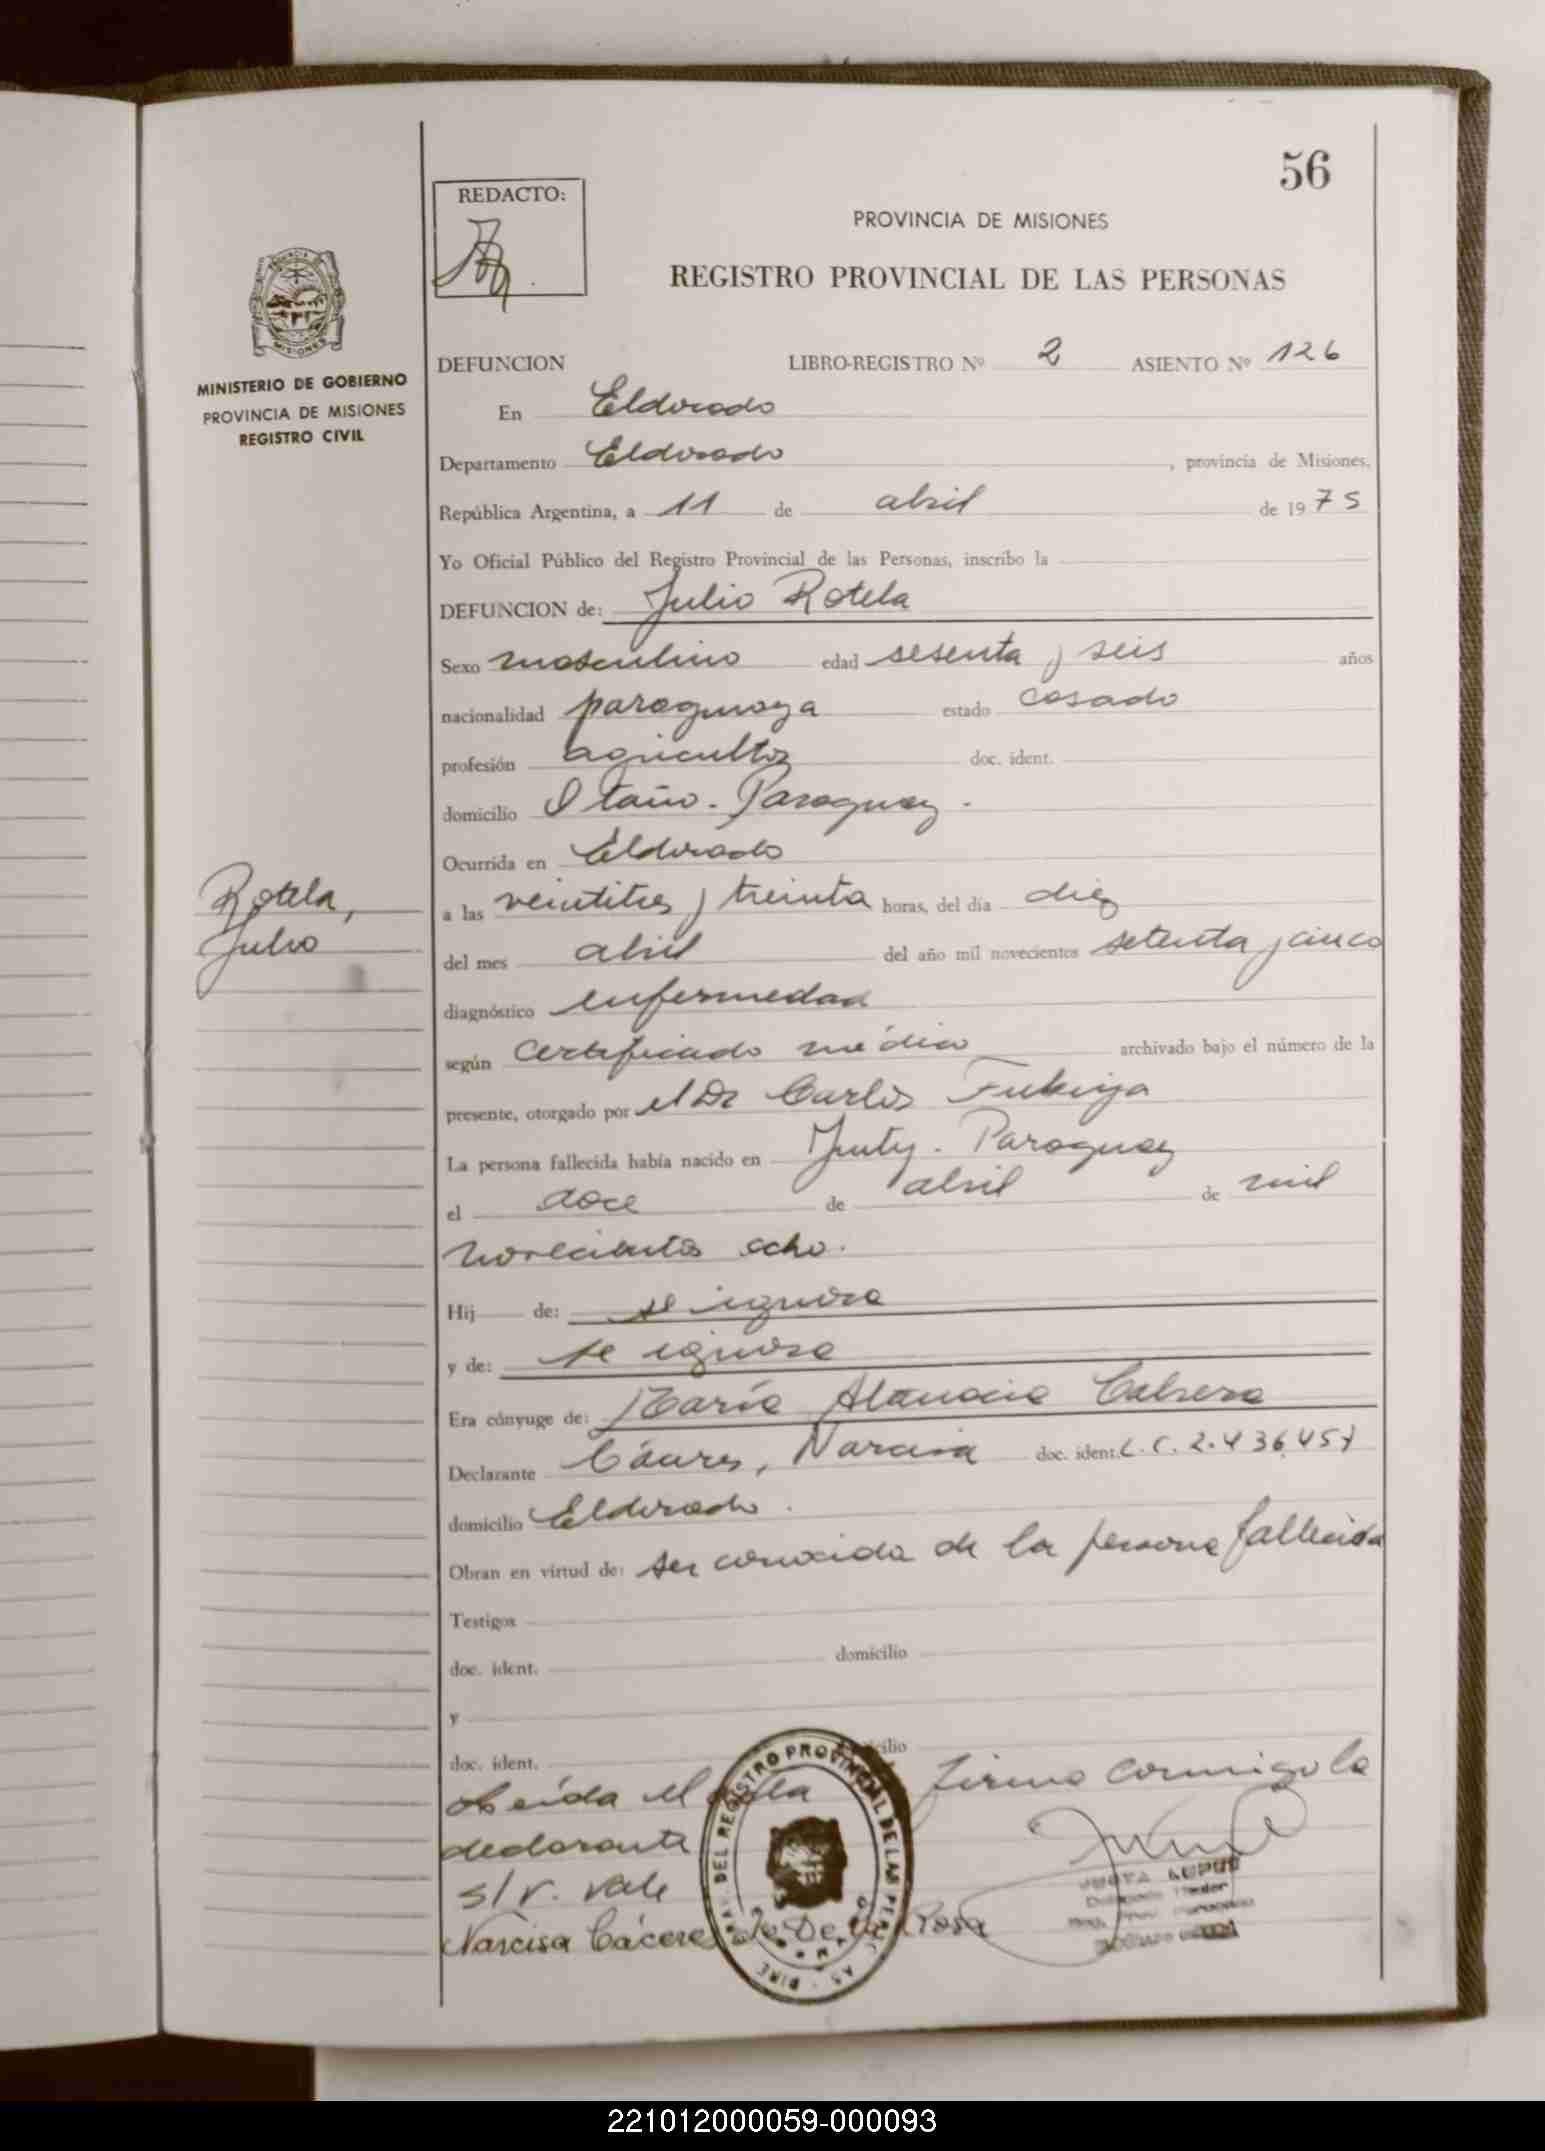 56
REDACTO:
PROVINCIA DE MISIONES
REGISTRO PROVINCIAL DE LAS PERSONAS
MISIONES
MINISTERIO DE GOBIERNO
PROVINCIA DE MISIONES
REGISTRO CIVIL
DEFUNCION LIBRO-REGISTRO Nº 2 ASIENTO Nº 126
En Eldorado
Departamento Eldorado , provincia de Misiones,
República Argentina, a 11 de abril de 1975
Yo Oficial Público del Registro Provincial de las Personas, inscribo la
DEFUNCION de: Julio Rotela
Sexo masculino edad sesenta y seis años
nacionalidad paraguaya estado casado
profesión agricultor doc. ident.
domicilio Itaño. Paraguay.
Ocurrida en Eldorado
Rotela,
Julio
a las veintitres y treinta horas, del día diez
del mes abril del año mil novecientos setenta y cinco
diagnóstico enfermedad
según certificado médico archivado bajo el número de la
presente, otorgado por el Dr Carlos
La persona fallecida había nacido en Yuty. Paraguay
el doce de abril de mil
novecientos ocho.
Hij de: se ignora
y de: se ignora
Era cónyuge de: María Atanacia Cabrera
Declarante Cáceres, Narcisa doc. ident. L.C. 2.436.457
domicilio Eldorado.
Obran en virtud de: ser conocida de la persona fallecida
Testigos
doc. ident. domicilio
y
doc. ident. domicilio
Leída el acta firma conmigo la
declarante
s/r. vale
Narcisa Cáceres de De La Rosa
DEL REGISTRO PROVINCIAL DE LAS PERSONAS
221012000059-000093